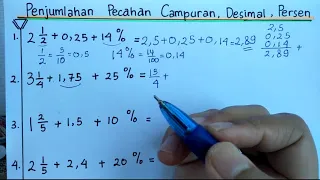 Penjumlahan Pecahan Campuran, Desimal, Persen
1. 2 1/2 + 0,25 + 14% = 2,5 + 0,25 + 0,14 = 2,89
1/2 = 5/10 = 0,5 14% = 14/100 = 0,14
2,5
0,25
0,14 +
2,89
2. 3 1/4 + 1,75 + 25% = 13/4 +
3. 1 2/5 + 1,5 + 10% =
4. 2 1/5 + 2,4 + 20% =